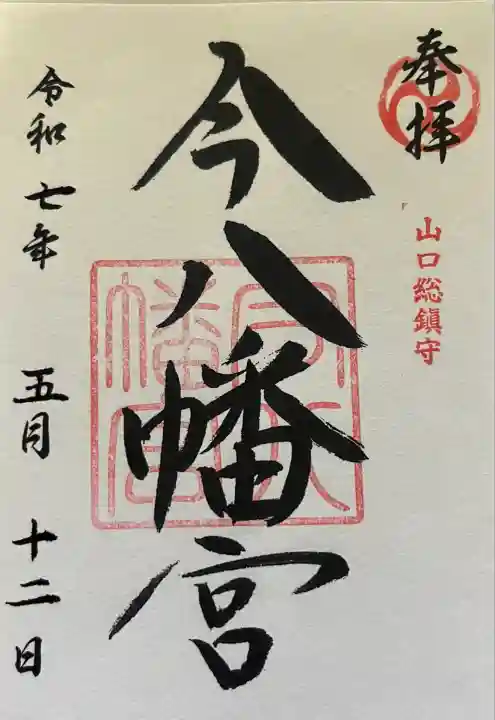 奉拝
山口総鎮守
今八幡宮
今八幡宮
令和七年 五月 十二日